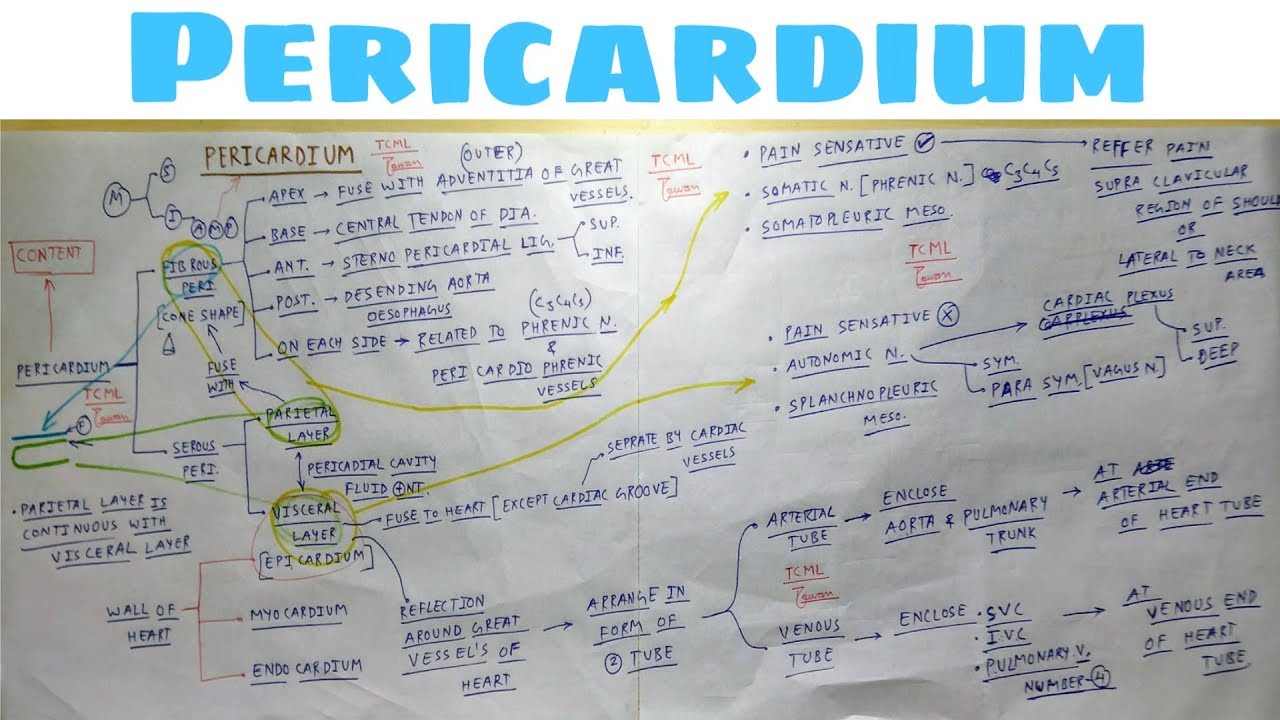 PERICARDIUM
PERICARDIUM
TCML
Pawan
(OUTER)
M
S
I
A M P
CONTENT
PERICARDIUM
FIBROUS
PERI.
[CONE SHAPE]
APEX → FUSE WITH ADVENTITIA OF GREAT
VESSELS.
BASE → CENTRAL TENDON OF DIA.
ANT. → STERNO PERICARDIAL LIG.
SUP.
INF.
POST. → DESENDING AORTA
OESOPHAGUS
(C3C4C5)
ON EACH SIDE → RELATED TO PHRENIC N.
&
PERI CARDIO PHRENIC
VESSELS
FUSE
WITH
TCML
Pawan
F
SEROUS
PERI.
PARIETAL
LAYER
PERICADIAL CAVITY
FLUID ⊕NT.
VISCERAL
LAYER
[EPICARDIUM]
→ FUSE TO HEART [EXCEPT CARDIAC GROOVE]
SEPRATE BY CARDIAC
VESSELS
• PARIETAL LAYER IS
CONTINUOUS WITH
VISCERAL LAYER
WALL OF
HEART
MYOCARDIUM
ENDO CARDIUM
REFLECTION
AROUND GREAT
VESSEL'S OF
HEART
→ ARRANGE IN
FORM OF
② TUBE
ARTERIAL
TUBE
→ ENCLOSE
AORTA & PULMONARY
TRUNK
→ AT
ARTERIAL END
OF HEART TUBE
TCML
Pawan
VENOUS
TUBE
→ ENCLOSE • SVC
• IVC
• PULMONARY V.
NUMBER-④
→ AT
VENOUS END
OF HEART
TUBE
TCML
Pawan
• PAIN SENSATIVE ✓
→ REFFER PAIN
SUPRA CLAVICULAR
REGION OF SHOULD
OR
LATERAL TO NECK
AREA
• SOMATIC N. [PHRENIC N.] C3C4C5
• SOMATOPLEURIC MESO.
TCML
Pawan
• PAIN SENSATIVE ✗
• AUTONOMIC N.
CARDIAC PLEXUS
SUP.
DEEP
SYM.
PARA SYM. [VAGUS N.]
• SPLANCHNOPLEURIC
MESO.